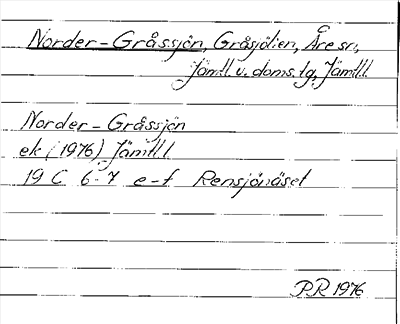 Norder-Gråssjön, Gråsjölien, Åre sn,
Jämtl. v. doms.tg, Jämtl.l.
Norder-Gråssjön
ek (1976) Jämtl.l
19 C 6-7 e-f Rensjönäset
P.R 1976